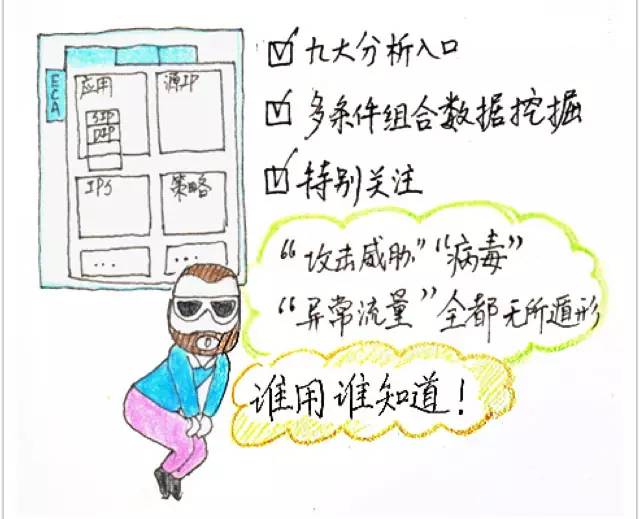 ECA
应用
源IP
SIP
DIP
IPS
策略
...
...
☑ 九大分析入口
☑ 多条件组合数据挖掘
☑ 特别关注
“攻击威胁”“病毒”
“异常流量”全都无所遁形
谁用谁知道!